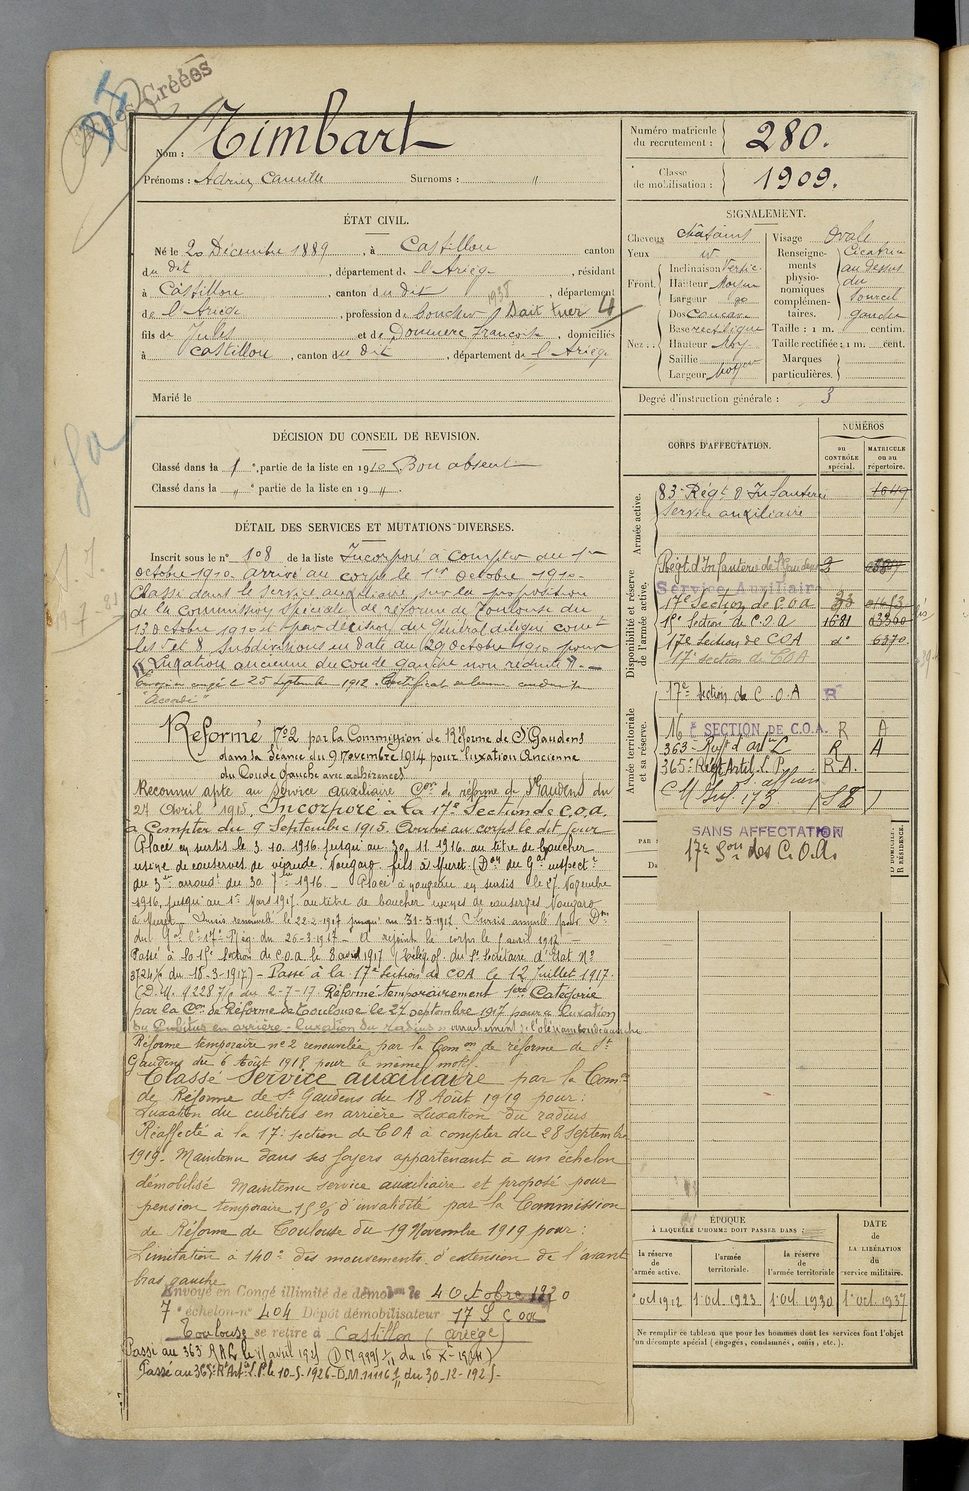 Créées
Nom : Timbart
Prénoms : Adrien Camille Surnoms : "
Numéro matricule du recrutement : 280.
Classe de mobilisation : 1909.
ÉTAT CIVIL.
Né le 20 Décembre 1889, à Castillon canton
du dit, département de l'Ariège, résidant
à Castillon, canton du dit, département
de l'Ariège, profession de boucher
fils de Jules et de Doumerc Françoise, domiciliés
à Castillon, canton du dit, département de l'Ariège
Marié le
SIGNALEMENT.
Cheveux châtains
Yeux
Front. Inclinaison Vertic.
Hauteur Moyen
Largeur
Nez : Dos Concave
Base rectiligne
Hauteur Moy
Saillie
Largeur Moyen
Visage Ovale
Renseignements physionomiques complémentaires. Cicatrice au dessus du sourcil gauche
Taille : 1 m. centim.
Taille rectifiée : 1 m. cent.
Marques particulières.
Degré d'instruction générale : 3
DÉCISION DU CONSEIL DE REVISION.
Classé dans la 1e partie de la liste en 1910 Bon absent
Classé dans la " e partie de la liste en 19 "
DÉTAIL DES SERVICES ET MUTATIONS DIVERSES.
Inscrit sous le n° 108 de la liste Incorporé à compter du 1er
octobre 1910. Arrivé au corps le 1er Octobre 1910.
Classé dans le service auxiliaire sur la proposition
de la commission spéciale de réforme de Toulouse du
13 octobre 1910 et par décision du Général délégué comt
les 5 et 8 Subdivisions en date du 29 octobre 1910 pour
"Luxation ancienne du coude gauche non réduite".
Envoyé en congé le 25 septembre 1912. Certificat de bonne conduite
"Accordé"
Réformé n°2 par la Commission de Réforme de St Gaudens
dans sa séance du 9 Novembre 1914 pour "luxation Ancienne
du Coude Gauche avec adhérences"
Reconnu apte au service auxiliaire Con de réforme de St Gaudens du
27 Avril 1915. Incorporé à la 17e Section de C.O.A.
à Compter du 9 Septembre 1915. Arrivé au corps le dit jour
Placé en sursis le 3.10.1916 jusqu'au 30.11.1916 au titre de boucher
usine de conserves de viande Nougaro fils à Muret (Don du Gal inspectr
du 3me arrondt du 30 7bre 1916 - Placé à nouveau en sursis le 27 Novembre
1916, jusqu'au 1er Mars 1917 au titre de boucher usines de conserves Nougaro
à Muret - Sursis renouvelé le 22-2-1917 jusqu'au 31-5-1917. Sursis annulé par Don
du Gal Ct 17e Rég. du 26-3-1917 - A rejoint le corps le 5 avril 1917 -
Passé à la 15e Section de C.O.A. le 8 avril 1917
du 18-3-1917) - Passé à la 17e Section de COA le 12 Juillet 1917.
(D.M. 9228 du 2-7-17. Réformé temporairement 1ère Catégorie
par la Con de Réforme de Toulouse le 27 septembre 1917 pour « luxation
du Cubitus en arrière - luxation du radius » arrachement de l'olécrane coude gauche
Réforme temporaire n°2 renouvelée par la Comon de réforme de St
Gaudens du 6 Août 1918 pour le même motif.
Classé Service auxiliaire par la Comon
de Réforme de St Gaudens du 18 Août 1919 pour :
Luxation du cubitus en arrière Luxation du radius
Réaffecté à la 17e section de COA à compter du 28 Septembre
1919. Maintenu dans ses foyers appartenant à un échelon
démobilisé Maintenu service auxiliaire et proposé pour
pension temporaire 15% d'invalidité par la Commission
de Réforme de Toulouse du 19 Novembre 1919 pour :
Limitation à 140° des mouvements d'extension de l'avant
bras gauche
Envoyé en Congé illimité de démobon le 4 Octobre 1920
7e échelon n° 404 Dépôt démobilisateur 17 S COA
Toulouse se retire à Castillon (Ariège)
Passé au 363 RAL le 15 avril 1925 (DM 9995 du 16 Xbre 1924)
Passé au 365e Rt Artie L.P. le 10-5-1926 - D.M. 11116 du 30-12-1925-
CORPS D'AFFECTATION.
NUMÉROS
au CONTRÔLE spécial.
MATRICULE ou au répertoire.
Armée active.
83e Régt d'Infanterie 1049
Service auxiliaire
Disponibilité et réserve de l'armée active.
Régt d'Infanterie de St Gaudens
Service Auxiliaire
17e Section de C.O.A.
15e Section de C.O.A. 1681 03300
17e Section de COA do 6370
17e section de COA
Armée territoriale et sa réserve.
17e section de C.O.A R
16e SECTION de C.O.A. R A
363e Regt d'artie L R A
365e Régt Artil. L.P. R.A.
SANS AFFECTATION
17e Son des C.O.A.
D DOMICILE. R RÉSIDENCE.
ÉPOQUE
À LAQUELLE L'HOMME DOIT PASSER DANS :
la réserve de l'armée active.
l'armée territoriale.
la réserve de l'armée territoriale
DATE de LA LIBÉRATION du service militaire.
1er oct 1912 1er oct. 1923 1er Oct. 1930 1er Oct. 1937
Ne remplir ce tableau que pour les hommes dont les services font l'objet
d'un décompte spécial (engagés, condamnés, omis, etc.).